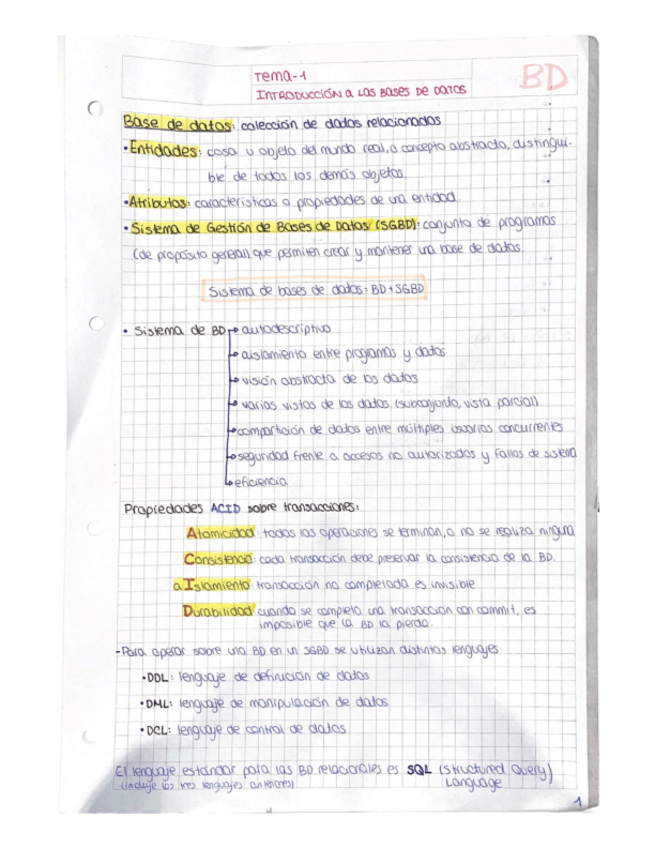 Tema-1
BD
INTRODUCCIÓN A LAS BASES DE DATOS
Base de datos: colección de datos relacionados
•Entidades: cosa u objeto del mundo real, o concepto abstracto, distingui-
ble de todos los demás objetos.
•Atributos: características o propiedades de una entidad.
• Sistema de Gestión de Bases de Datos (SGBD): conjunto de programas
(de propósito general) que permiten crear y mantener una base de datos.
Sistema de bases de datos: BD + SGBD
• Sistema de BD → autodescriptivo
→ aislamiento entre programas y datos
→ visión abstracta de los datos
→ varias vistas de los datos (subconjunto, vista parcial)
→ compartición de datos entre múltiples usuarios concurrentes
→ seguridad frente a accesos no autorizados y fallos de sistema
→ eficiencia
Propiedades ACID sobre transacciones:
Atomicidad: todas las operaciones se terminan, o no se realiza ninguna
Consistencia: cada transacción debe preservar la consistencia de la BD.
aIslamiento: transacción no completada es invisible
Durabilidad: cuando se completa una transacción con commit, es
imposible que la BD la pierda.
-Para operar sobre una BD en un SGBD se utilizan distintos lenguajes
•DDL: lenguaje de definición de datos
•DML: lenguaje de manipulación de datos
•DCL: lenguaje de control de datos
El lenguaje estándar para las BD relacionales es SQL (Structured Query
Language)
(incluye los tres lenguajes anteriores)
1